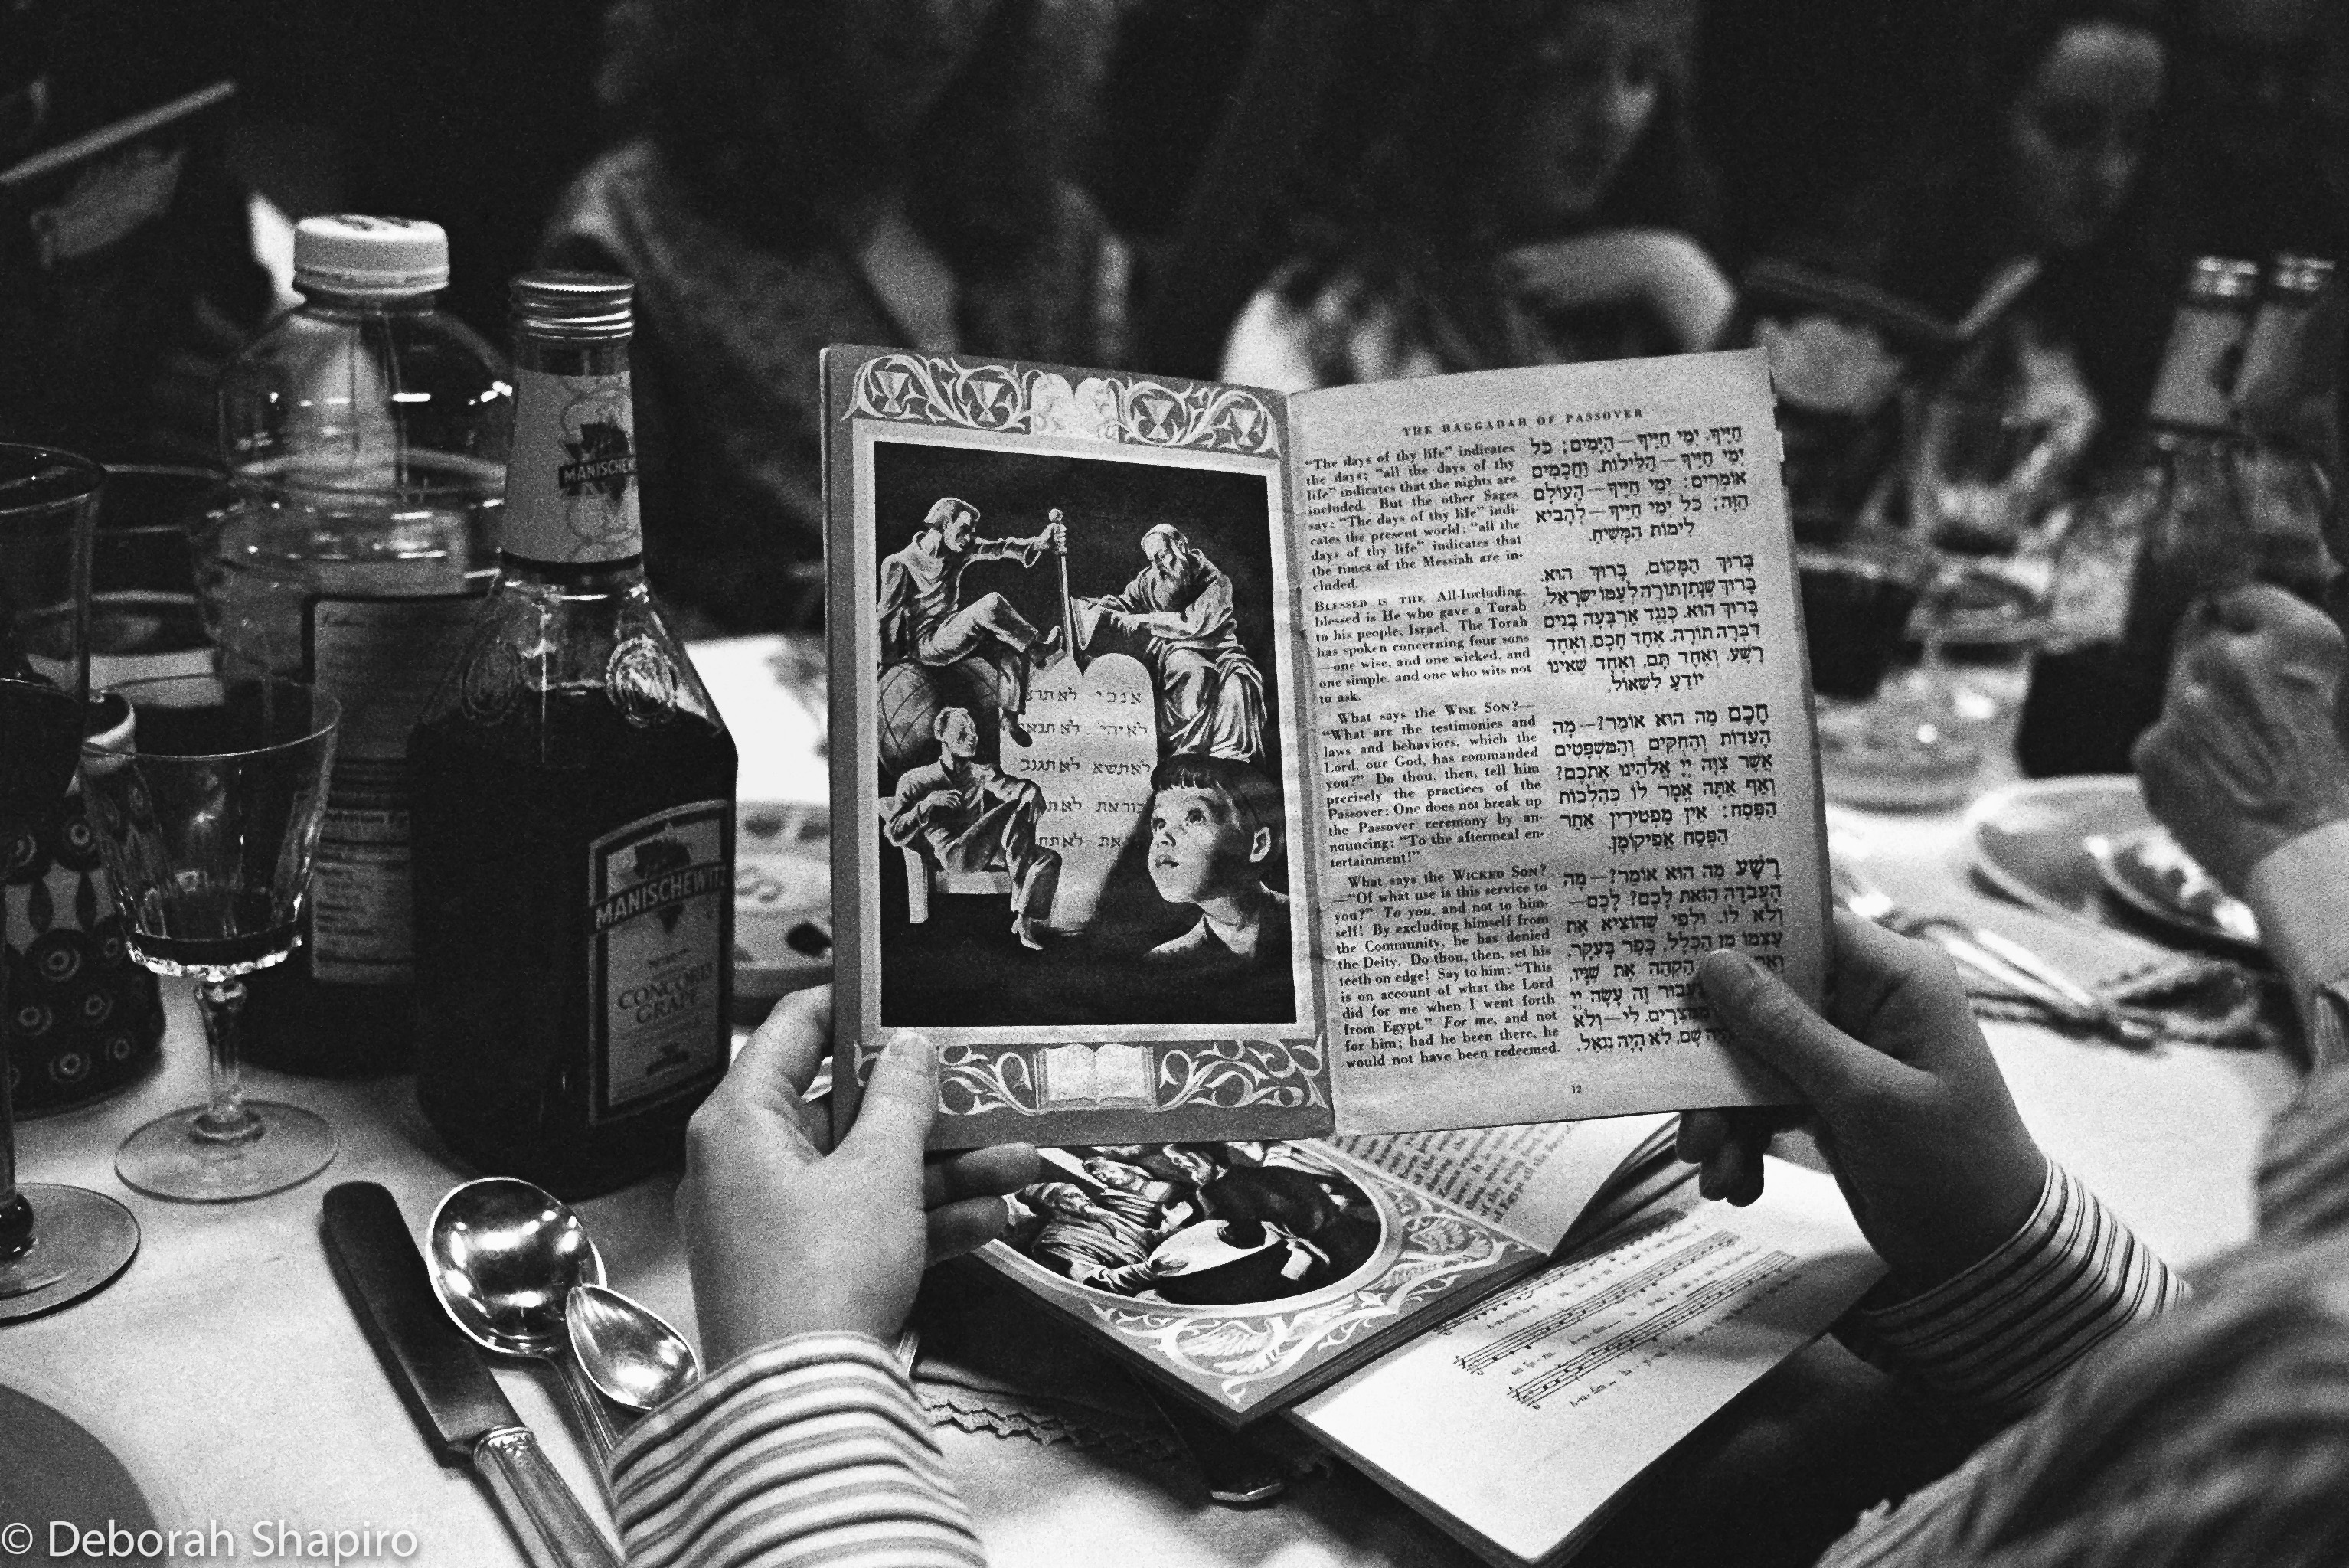 MANISCHEW
MANISCHEWITZ
CONCORD
GRAPE
אנכי
לא יהי׳
לא תשא
לא תרצ
לא תנא
לא תגנב
THE HAGGADAH OF PASSOVER
“The days of thy life” indicates
the days; “all the days of thy
life” indicates that the nights are
included. But the other Sages
say: “The days of thy life” indi-
cates the present world; “all the
days of thy life” indicates that
the times of the Messiah are in-
cluded.
BLESSED IS THE All-Including,
blessed is He who gave a Torah
to his people, Israel. The Torah
has spoken concerning four sons
—one wise, and one wicked, and
one simple, and one who wits not
to ask.
What says the WISE SON?—
“What are the testimonies and
laws and behaviors, which the
Lord, our God, has commanded
you?” Do thou, then, tell him
precisely the practices of the
Passover: One does not break up
the Passover ceremony by an-
nouncing: “To the aftermeal en-
tertainment!”
What says the WICKED SON?
—“Of what use is this service to
you?” To you, and not to him-
self! By excluding himself from
the Community, he has denied
the Deity. Do thou, then, set his
teeth on edge! Say to him: “This
is on account of what the Lord
did for me when I went forth
from Egypt.” For me, and not
for him; had he been there, he
would not have been redeemed.
חַיֶּיךָ. יְמֵי חַיֶּיךָ—הַיָּמִים; כֹּל
יְמֵי חַיֶּיךָ—הַלֵּילוֹת. וַחֲכָמִים
אוֹמְרִים: יְמֵי חַיֶּיךָ—הָעוֹלָם
הַזֶּה; כֹּל יְמֵי חַיֶּיךָ—לְהָבִיא
לִימוֹת הַמָּשִׁיחַ.
בָּרוּךְ הַמָּקוֹם, בָּרוּךְ הוּא.
בָּרוּךְ שֶׁנָּתַן תּוֹרָה לְעַמּוֹ יִשְׂרָאֵל,
בָּרוּךְ הוּא. כְּנֶגֶד אַרְבָּעָה בָנִים
דִּבְּרָה תוֹרָה. אֶחָד חָכָם, וְאֶחָד
רָשָׁע, וְאֶחָד תָּם, וְאֶחָד שֶׁאֵינוֹ
יוֹדֵעַ לִשְׁאוֹל.
חָכָם מַה הוּא אוֹמֵר?—מָה
הָעֵדוֹת וְהַחֻקִּים וְהַמִּשְׁפָּטִים
אֲשֶׁר צִוָּה יְיָ אֱלֹהֵינוּ אֶתְכֶם?
וְאַף אַתָּה אֱמָר לוֹ כְּהִלְכוֹת
הַפֶּסַח: אֵין מַפְטִירִין אַחַר
הַפֶּסַח אֲפִיקוֹמָן.
רָשָׁע מַה הוּא אוֹמֵר?—מָה
הָעֲבֹדָה הַזֹּאת לָכֶם? לָכֶם—
וְלֹא לוֹ. וּלְפִי שֶׁהוֹצִיא אֶת
עַצְמוֹ מִן הַכְּלָל, כָּפַר בָּעִקָּר,
הַקְהֵה אֶת שִׁנָּיו,
זֶה עָשָׂה יְיָ
לִי—וְלֹא
שָׁם, לֹא הָיָה נִגְאָל.
12
© Deborah Shapiro